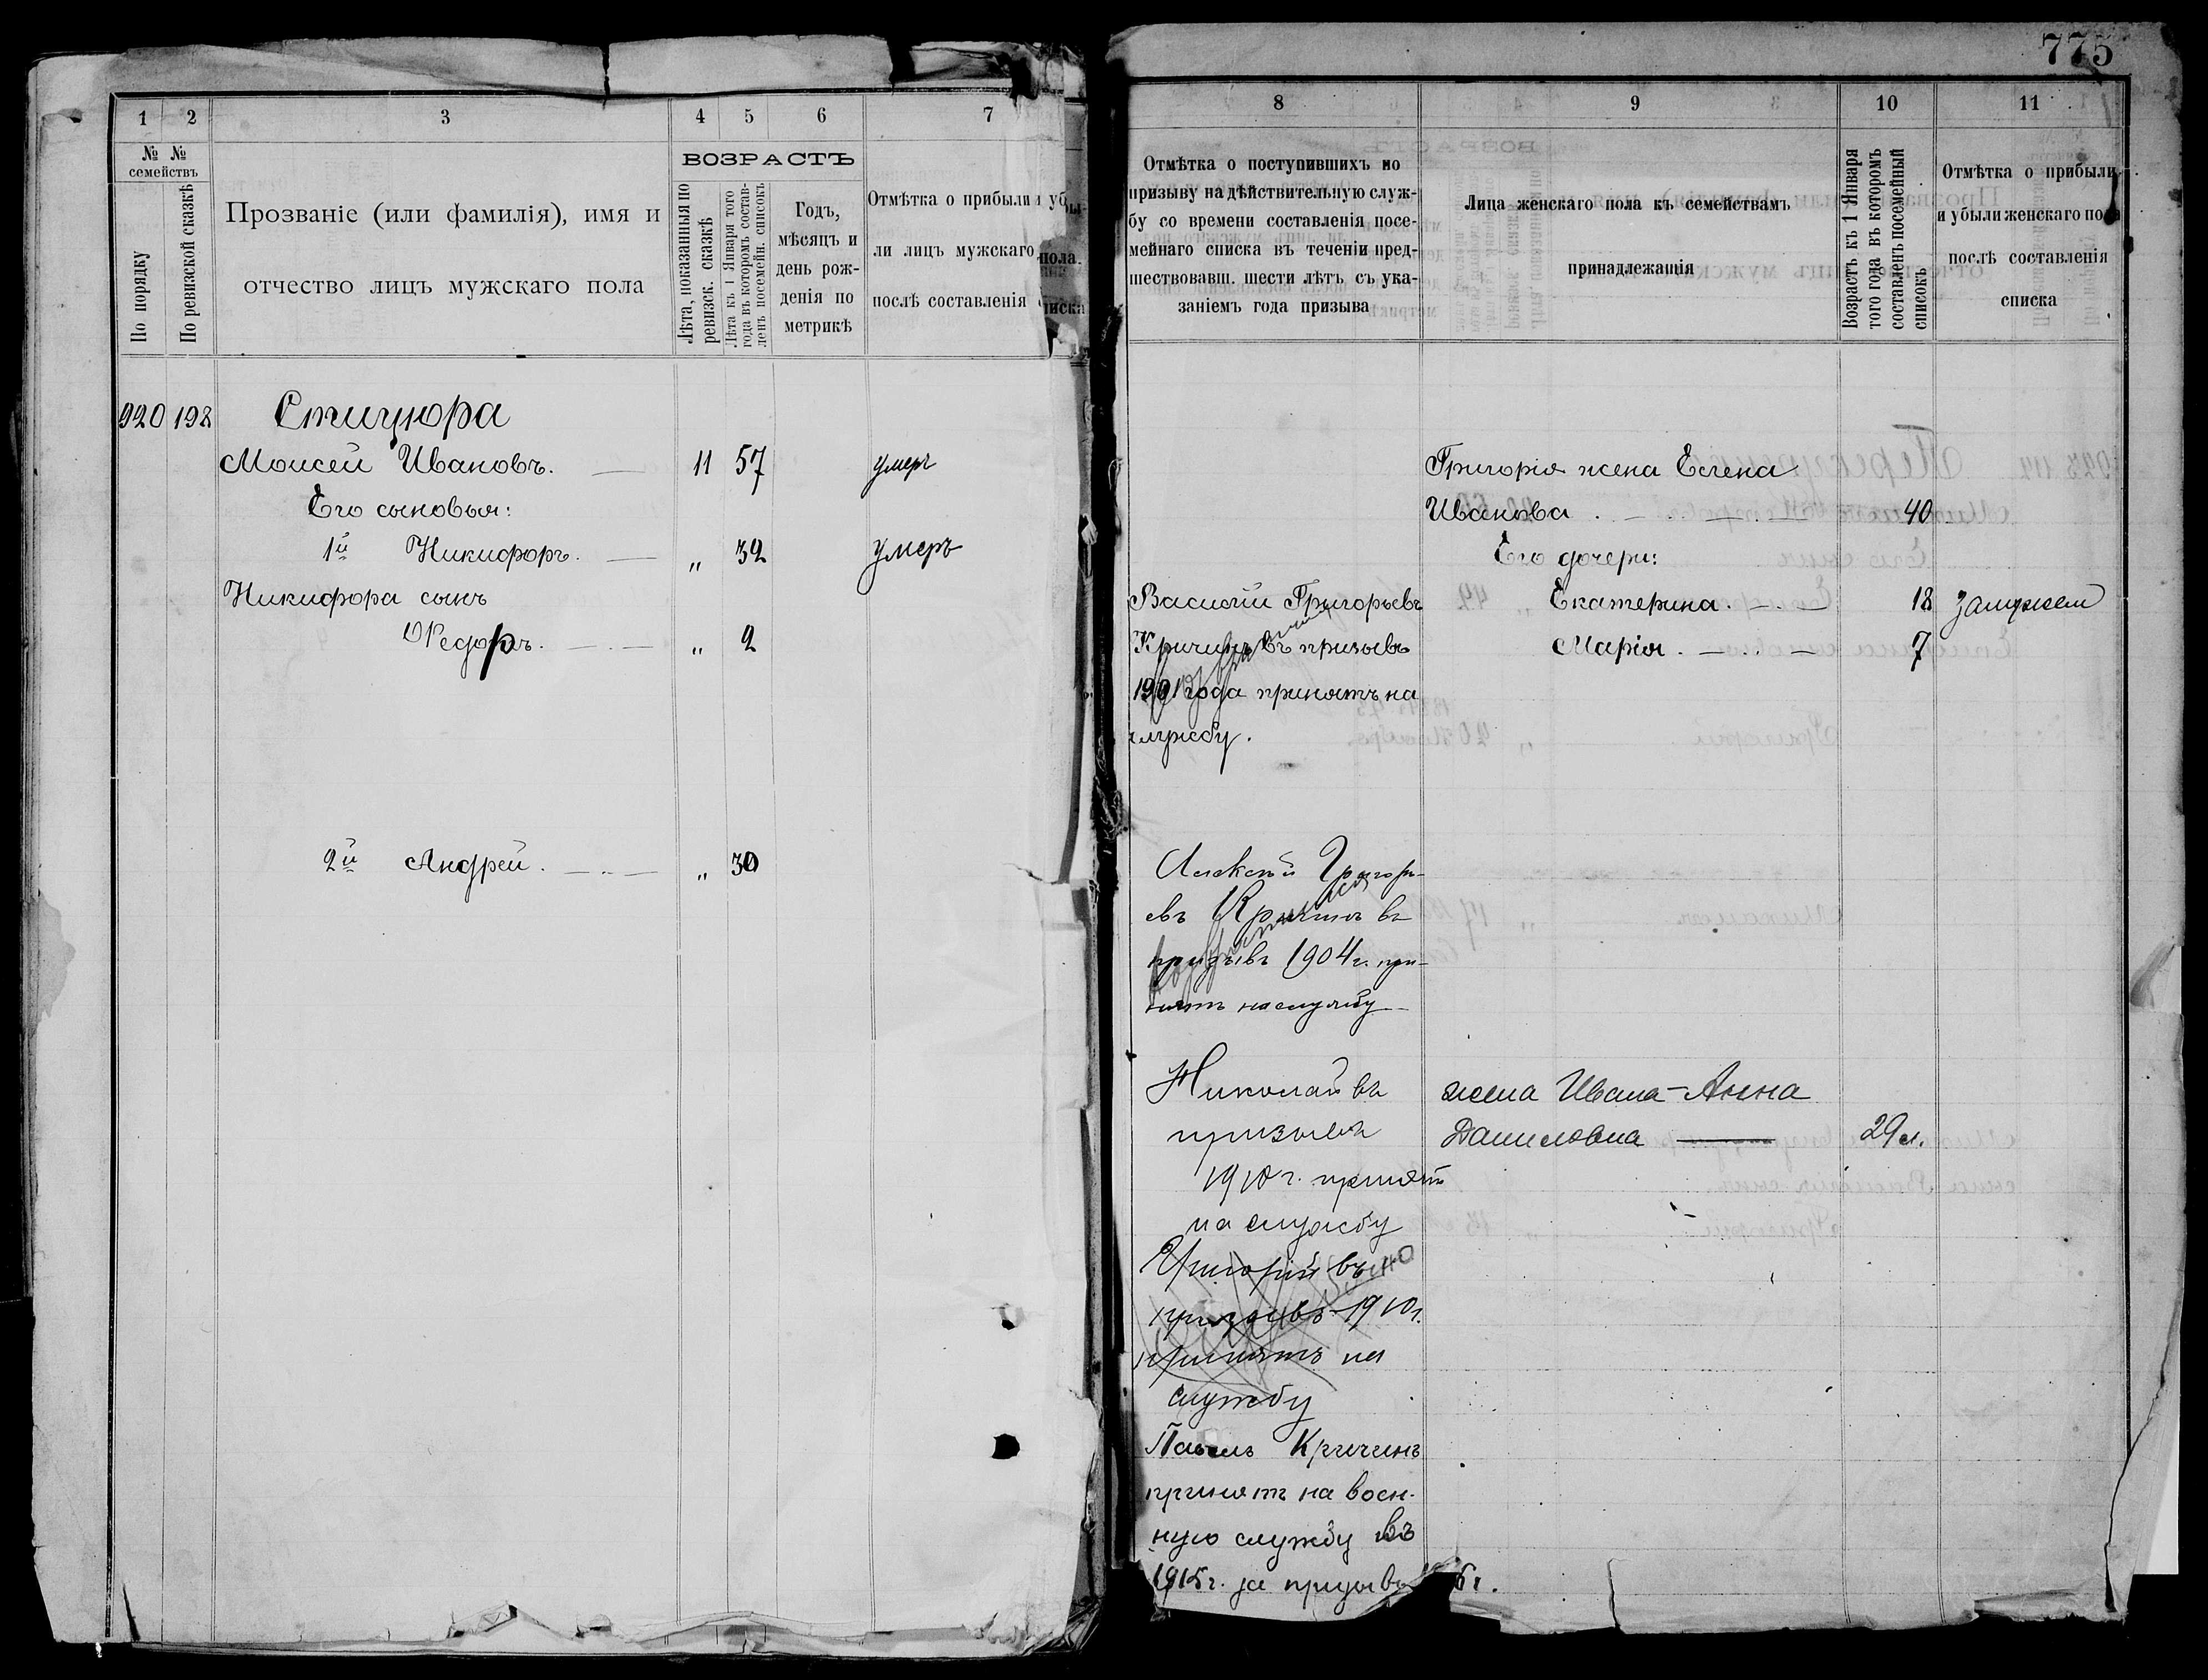 1 2 3 4 5 6 7
№ № семействъ
По порядку
По ревизской сказкѣ
Прозваніе (или фамилія), имя и
отчество лицъ мужскаго пола
ВОЗРАСТЪ
Лѣта, показанныя по
ревизск. сказкѣ
Лѣта къ 1 Января того
года въ которомъ состав-
ленъ посемейн. списокъ
Годъ,
мѣсяцъ и
день рож-
денія по
метрикѣ
Отмѣтка о прибыли и убы-
ли лицъ мужскаго пола
послѣ составленія списка
920 198 Стицюра
Моисей Ивановъ. 11 57 умеръ
Его сыновья:
1й Никифоръ. „ 32 умеръ
Никифора сынъ
Ѳедоръ. „ 2
2й Андрей. „ 30
775
8 9 10 11
Отмѣтка о поступившихъ по
призыву на дѣйствительную служ-
бу со времени составленія посе-
мейнаго списка въ теченіи пред-
шествовавш. шести лѣтъ съ ука-
заніемъ года призыва
Лица женскаго пола къ семействамъ
принадлежащія
Возрастъ къ 1 Января
того года въ которомъ
составленъ посемейный
списокъ
Отмѣтка о прибыли
и убыли женскаго пола
послѣ составленія
списка
Григорія жена Елена
Иванова 40
Его дочери:
Василій Григорьевъ Екатерина. 18 замужем
Кричинъ въ призывъ Марія. 7
1901 года принятъ на
службу.
Алексѣй Григорь-
евъ Кричинъ въ
призывъ 1904 г. при-
нятъ на службу
Николай въ жена Ивана - Анна
призывъ Даниловна 29 л.
1910 г. принятъ
на службу
Григорій въ
призывъ 1910 г.
принятъ на
службу
Павелъ Кричинъ
принятъ на воен-
ную службу въ
1915 г. за призывъ 6 г.